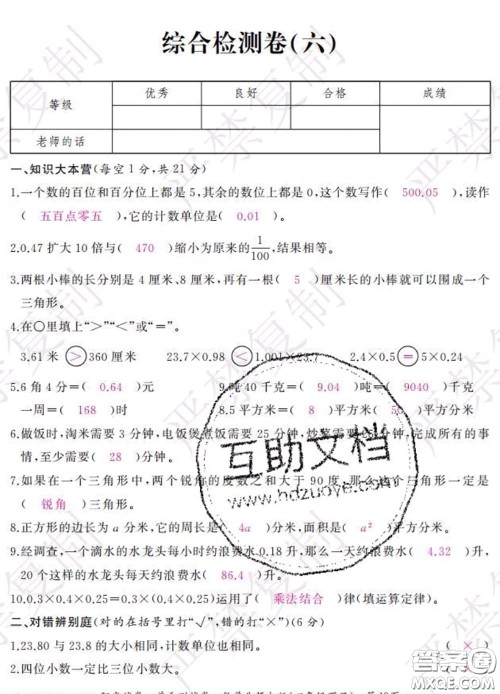 综合检测卷(六)
等级 优秀 良好 合格 成绩
老师的话
一、知识大本营(每空1分,共21分)
1.一个数的百位和百分位上都是5,其余的数位上都是0,这个数写作( 500.05 ),读作
( 五百点零五 ),它的计数单位是( 0.01 )。
2.0.47扩大10倍与( 470 )缩小为原来的1/100,结果相等。
3.两根小棒的长分别是4厘米、8厘米,再有一根( 5 )厘米长的小棒就可以围成一个
三角形。
4.在○里填上“>”“<”或“=”。
3.61米>360厘米 23.7×0.98<1.001×23.7 2.4×0.5=5×0.24
5.6角4分=( 0.64 )元 9吨40千克=( 9.04 )吨=( 9040 )千克
一周=( 168 )时 8.5平方米=( 8 )平方米( 50 )平方分米
6.做饭时,淘米需要3分钟,电饭煲煮饭需要25分钟,炒菜需要 分钟,完成所有的事
情,至少需要( 28 )分钟。
7.如果在一个三角形中,两个锐角的度数之和大于90度,那么这个三角形一定是
( 锐角 )三角形。
8.正方形的边长为a分米,它的周长是( 4a )分米,面积是( a² )平方分米。
9.经调查,一个滴水的水龙头每小时约浪费水0.18升,那么一天约浪费水( 4.32 )升,
20个这样的水龙头每天约浪费水( 86.4 )升。
10.0.3×0.4×0.25=0.3×(0.4×0.25)运用了( 乘法结合 )律(填运算定律)。
二、对错辨别庭(对的在括号里打“√”,错的打“×”)(6分)
1.23.80与23.8的大小相同,计数单位也相同。 ( × )
2.四位小数一定比三位小数大。
严禁复制
互助文档
www.hdzuoye.com
答案圈
MXQE.COM